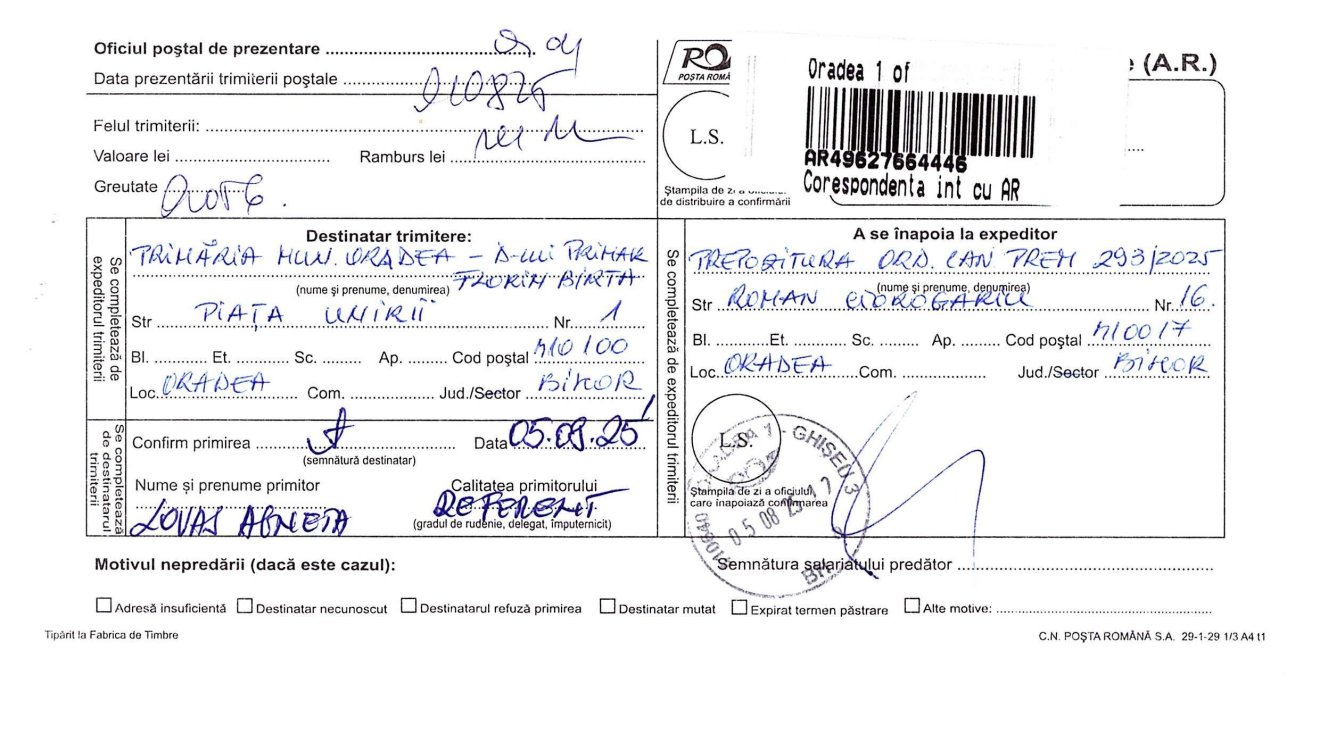 Oficiul poștal de prezentare
Data prezentării trimiterii poștale 010825
Felul trimiterii:
Valoare lei Ramburs lei
Greutate
RO
POȘTA ROMÂ
(A.R.)
L.S.
Ștampila de zi a oficiului
de distribuire a confirmării
Oradea 1 of
AR49627664446
Corespondenta int cu AR
Se completează de
expeditorul trimiterii
Destinatar trimitere:
PRIMĂRIA MUN. ORADEA - D-lui PRIMAR
FLORIN BIRTA
(nume și prenume, denumirea)
Str PIAȚA UNIRII Nr. 1
Bl. Et. Sc. Ap. Cod poștal 410100
Loc. ORADEA Com. Jud./Sector BIHOR
Se completează de expeditorul trimiterii
A se înapoia la expeditor
PREPOZITURA ORD. CAN PREM 293/2025
(nume și prenume, denumirea)
Str ROMAN CIOROGARIU Nr. 16.
Bl. Et. Sc. Ap. Cod poștal 410017
Loc. ORADEA Com. Jud./Sector BIHOR
Se completează
de destinatarul
trimiterii
Confirm primirea Data 05.08.25
(semnătură destinatar)
Nume și prenume primitor Calitatea primitorului
LOVAS AGNETA REFERENT
(gradul de rudenie, delegat, împuternicit)
L.S.
Ștampila de zi a oficiului
care înapoiază confirmarea
GHIȘEU 3
05 08 25 17
BH
Motivul nepredării (dacă este cazul): Semnătura salariatului predător
Adresă insuficientă Destinatar necunoscut Destinatarul refuză primirea Destinatar mutat Expirat termen păstrare Alte motive:
Tipărit la Fabrica de Timbre C.N. POȘTA ROMÂNĂ S.A. 29-1-29 1/3 A4 t1